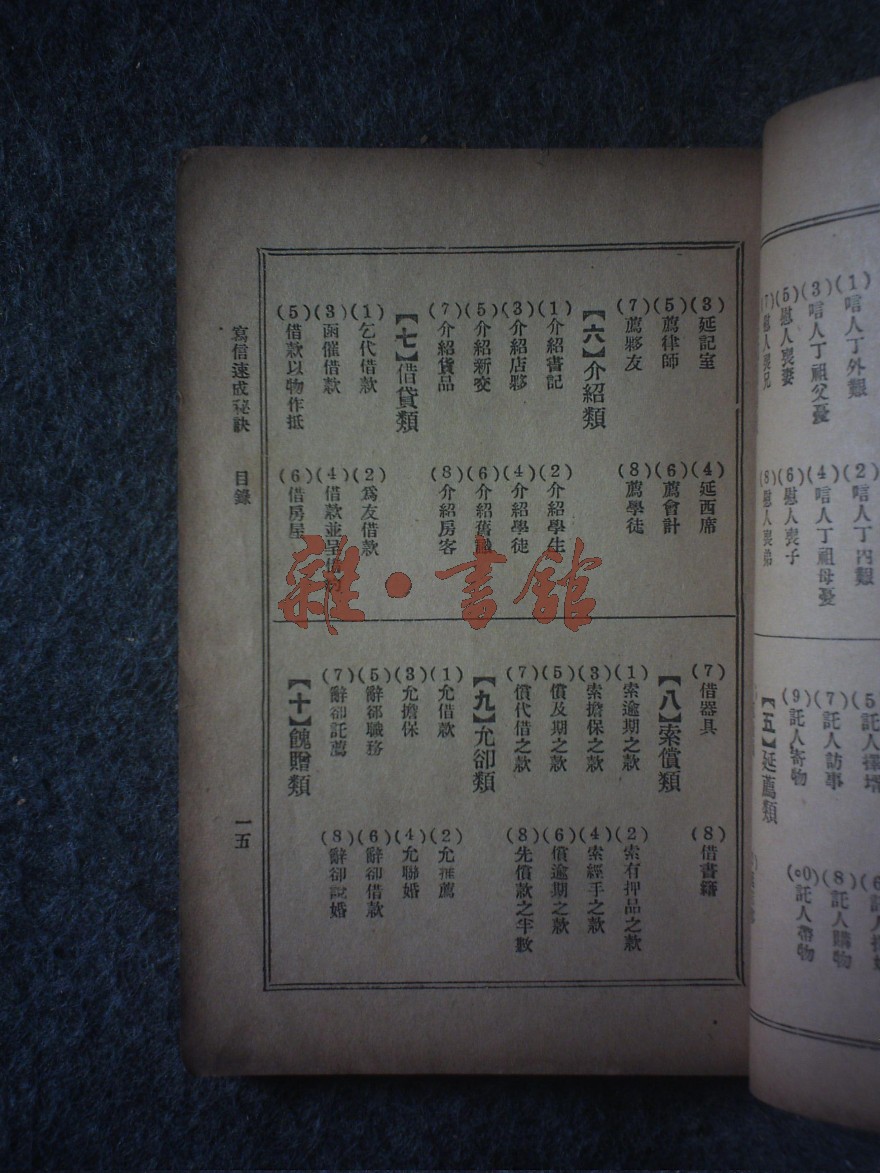 (1)唁人丁外艱
(2)唁人丁內艱
(3)唁人丁祖父憂
(4)唁人丁祖母憂
(5)慰人喪妻
(6)慰人喪子
(7)慰人喪兄
(8)慰人喪弟
(7)託人訪事
(8)託人購物
(9)託人寄物
託人帶物
【五】延薦類
(3)延記室
(4)延西席
(5)薦律師
(6)薦會計
(7)薦夥友
(8)薦學徒
【六】介紹類
(1)介紹書記
(2)介紹學生
(3)介紹店夥
(4)介紹學徒
(5)介紹新交
(6)介紹舊識
(7)介紹貨品
(8)介紹房客
【七】借貸類
(1)乞代借款
(2)爲友借款
(3)函催借款
(4)借款並呈借
(5)借款以物作抵
(6)借房屋
(7)借器具
(8)借書籍
【八】索償類
(1)索逾期之款
(2)索有押品之款
(3)索擔保之款
(4)索經手之款
(5)償及期之款
(6)償逾期之款
(7)償代借之款
(8)先償款之半數
【九】允卻類
(1)允借款
(2)允推薦
(3)允擔保
(4)允聯婚
(5)辭卻職務
(6)辭卻借款
(7)辭卻託薦
(8)辭卻說婚
【十】餽贈類
寫信速成秘訣 目錄
一五
雜·書館